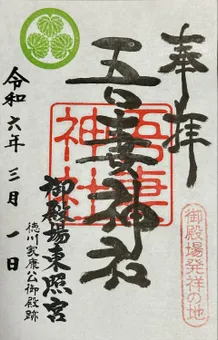 奉拝
吾妻神社
吾妻神社
御殿場発祥の地
御殿場東照宮
徳川家康公御殿跡
令和六年三月一日